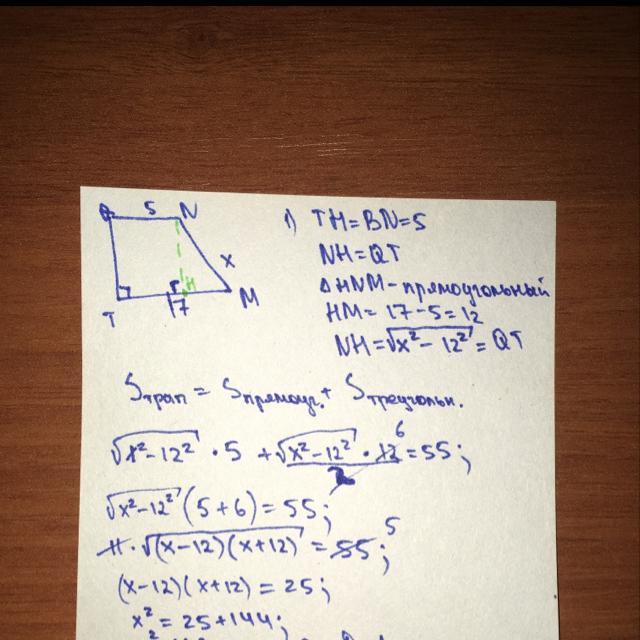 Q 5 N
x
H
T 17 M
1) TH=BN=5
NH=QT
ΔHNM-прямоугольный
HM= 17-5=12
NH=√(x²-12²) = QT
Sтрап = Sпрямоуг. + Sтреугольн.
√(x²-12²) · 5 + √(x²-12²) · 12 6 / 2 = 55;
√(x²-12²) (5+6) = 55;
11 · √((x-12)(x+12)) = 55; 5
(x-12)(x+12) = 25;
x² = 25+144;